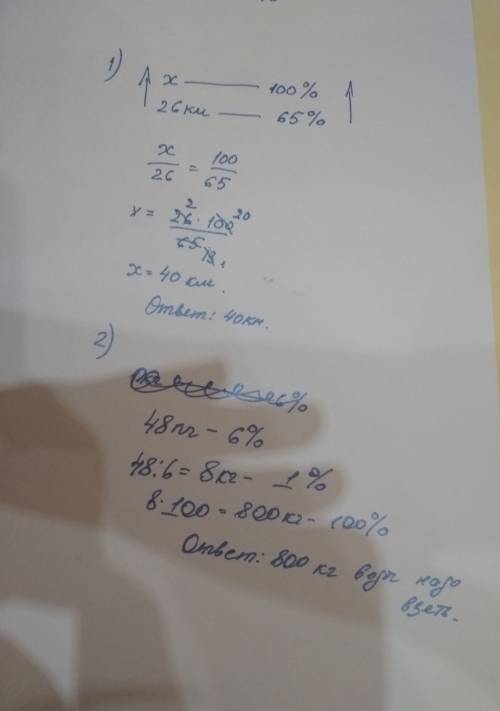 1)
x — 100%
26 км — 65%
x/26 = 100/65
x = 26 2 · 100 20 / 65 13 1
x = 40 км.
Ответ: 40км.
2)
6%
48кг – 6%
48:6 = 8кг – 1%
8·100 = 800кг – 100%
Ответ: 800 кг воды надо
взять.